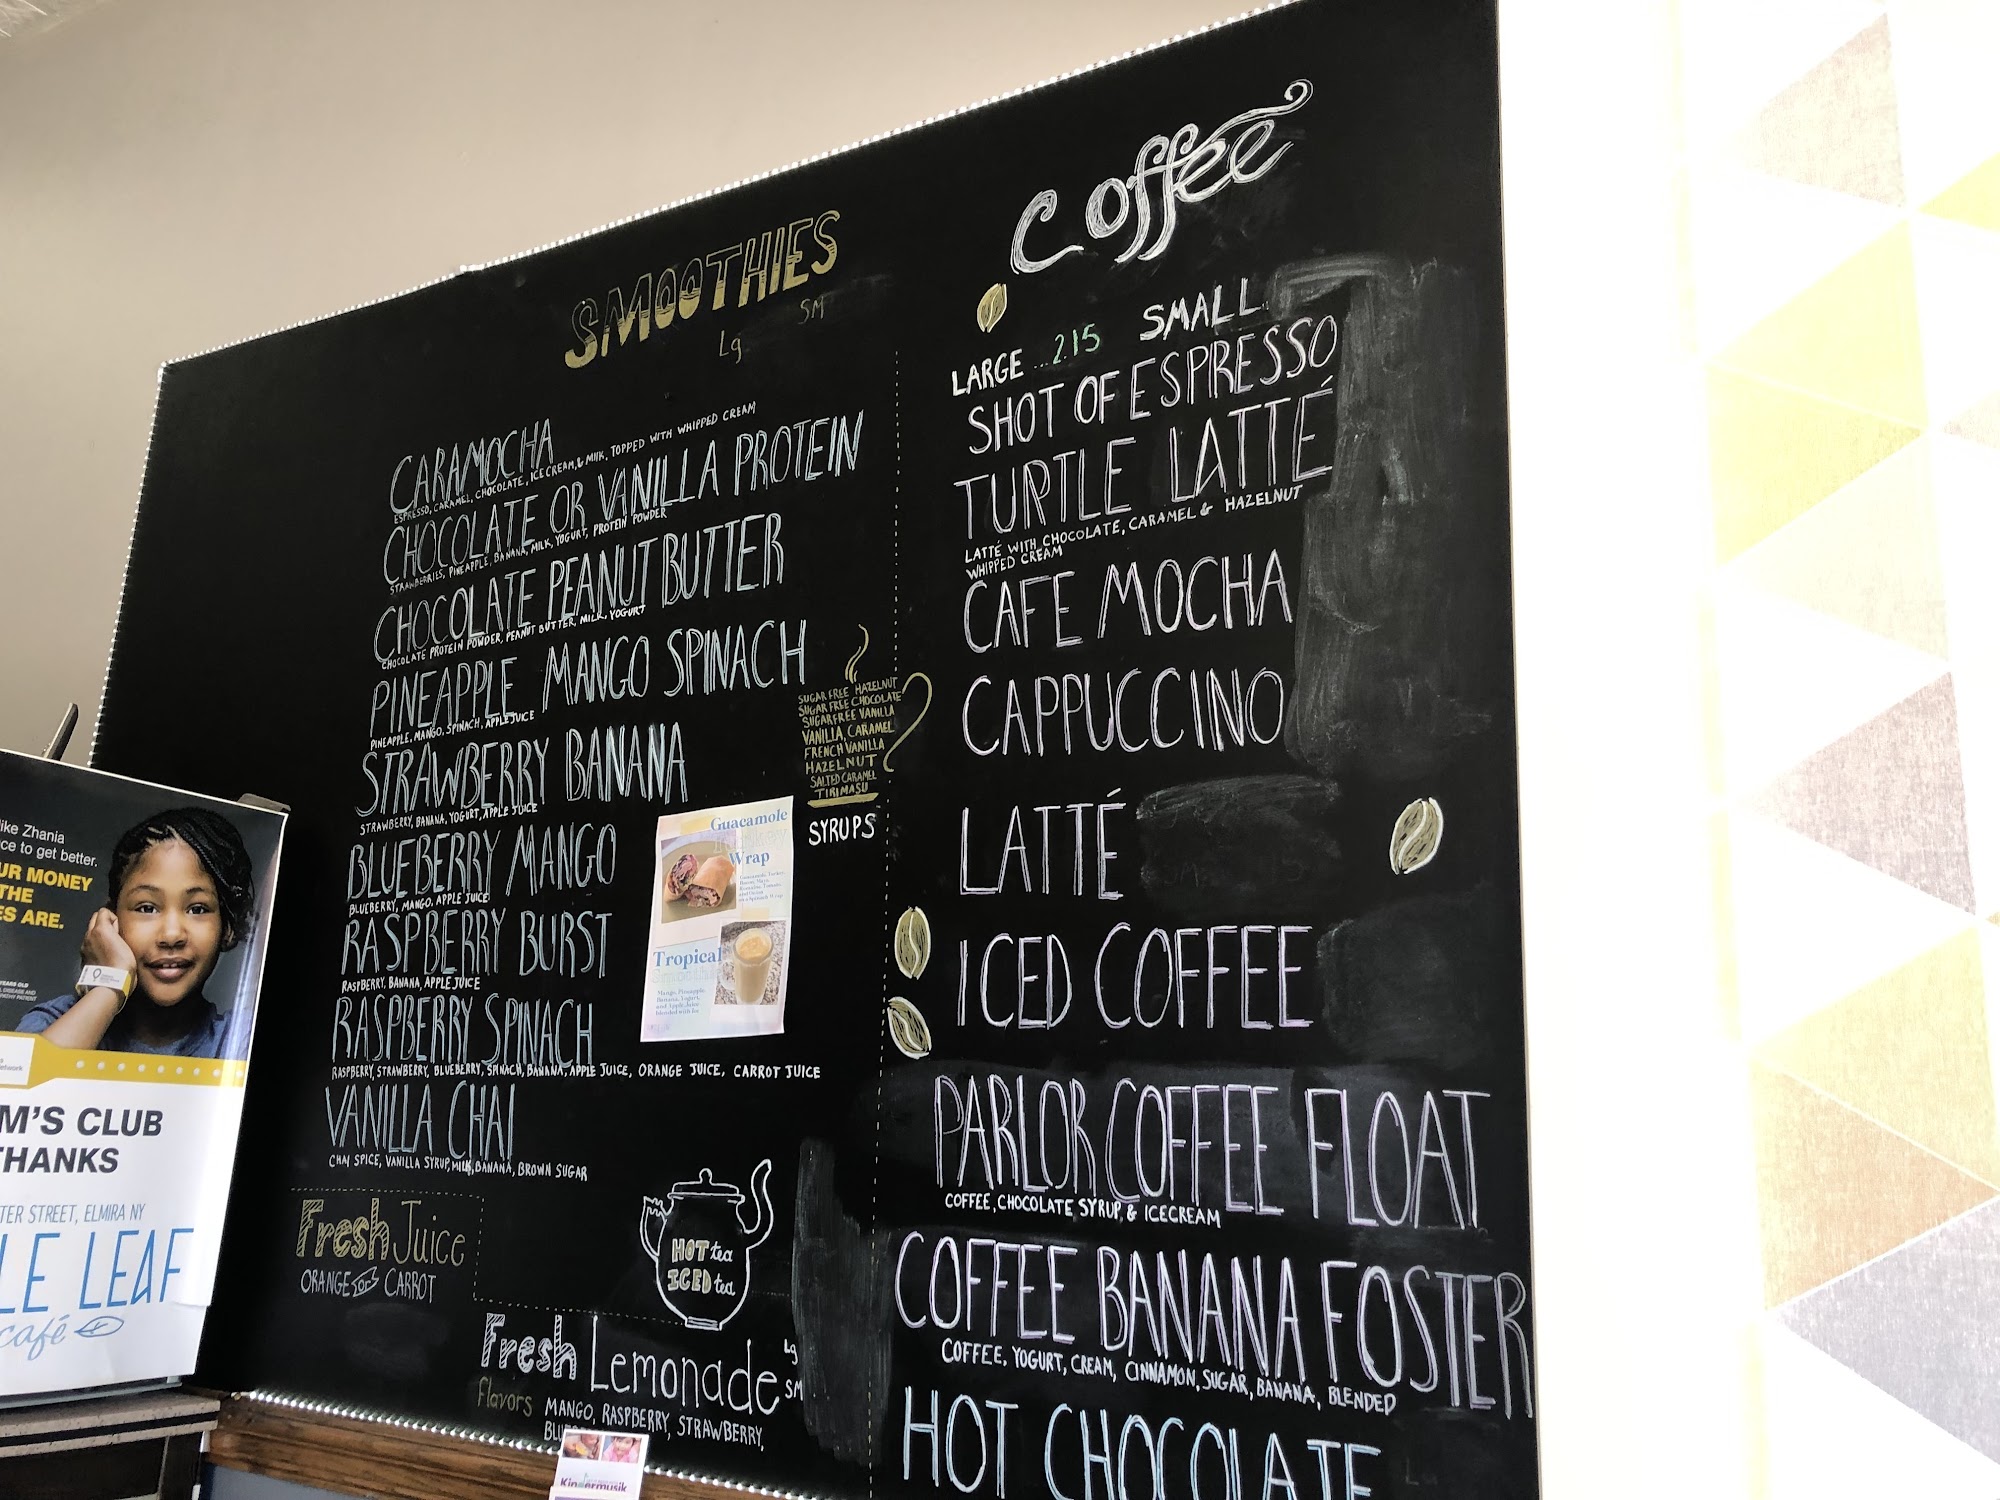 SMOOTHIES
Lg SM
CARAMOCHA
ESPRESSO, CARAMEL, CHOCOLATE, ICE CREAM, & MILK, TOPPED WITH WHIPPED CREAM
CHOCOLATE OR VANILLA PROTEIN
STRAWBERRIES, PINEAPPLE, BANANA, MILK, YOGURT, PROTEIN POWDER
CHOCOLATE PEANUT BUTTER
CHOCOLATE PROTEIN POWDER, PEANUT BUTTER, MILK, YOGURT
PINEAPPLE MANGO SPINACH
PINEAPPLE, MANGO, SPINACH, APPLE JUICE
STRAWBERRY BANANA
STRAWBERRY, BANANA, YOGURT, APPLE JUICE
BLUEBERRY MANGO
BLUEBERRY, MANGO, APPLE JUICE
RASPBERRY BURST
RASPBERRY, BANANA, APPLE JUICE
RASPBERRY SPINACH
RASPBERRY, STRAWBERRY, BLUEBERRY, SPINACH, BANANA, APPLE JUICE, ORANGE JUICE, CARROT JUICE
VANILLA CHAI
CHAI SPICE, VANILLA SYRUP, MILK, BANANA, BROWN SUGAR
Fresh Juice
ORANGE or CARROT
HOT tea
ICED tea
Fresh Lemonade Lg SM
Flavors MANGO, RASPBERRY, STRAWBERRY,
SUGAR FREE HAZELNUT
SUGAR FREE CHOCOLATE
SUGAR FREE VANILLA
VANILLA, CARAMEL
FRENCH VANILLA
HAZELNUT
SALTED CARAMEL
TIRIMASU
SYRUPS
Guacamole
Wrap
Tropical
Smoothie
Mango, Pineapple,
Banana, Yogurt,
and Apple Juice
blended with Ice
Coffee
LARGE ...2.15 SMALL
SHOT OF ESPRESSO
TURTLE LATTÉ
LATTÉ WITH CHOCOLATE, CARAMEL & HAZELNUT
WHIPPED CREAM
CAFE MOCHA
CAPPUCCINO
LATTÉ
ICED COFFEE
PARLOR COFFEE FLOAT
COFFEE, CHOCOLATE SYRUP, & ICECREAM
COFFEE BANANA FOSTER
COFFEE, YOGURT, CREAM, CINNAMON, SUGAR, BANANA, BLENDED
HOT CHOCOLATE
ike Zhania
ce to get better.
UR MONEY
THE
ES ARE.
M'S CLUB
THANKS
TER STREET, ELMIRA NY
LE LEAF
café
Kindermusik